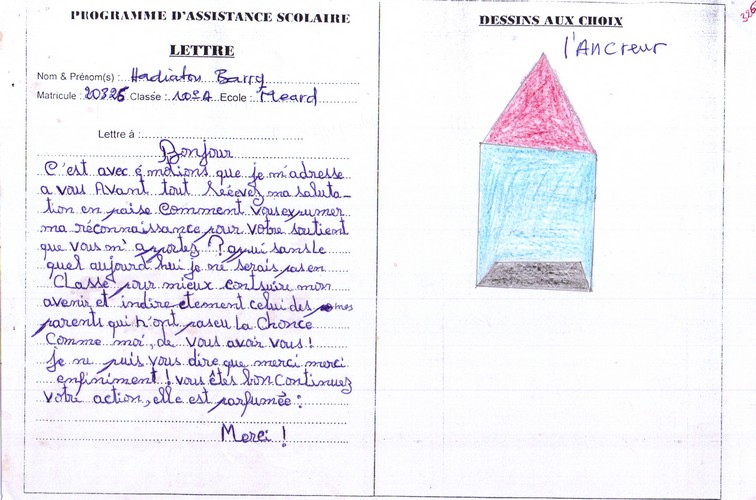 PROGRAMME D'ASSISTANCE SCOLAIRE
LETTRE
Nom & Prénom(s) : Hadiatou Barry
Matricule : 20326 Classe : 10è A Ecole : Fleard
Lettre à :
Bonjour
C'est avec émotions que je m'adresse
a vous Avant tout Réceves ma saluta-
tion en paise Comment vous exprimer
ma réconnaissance pour votre soutient
que vous m'apportez ? appui sans le
quel aujourd'hui je ne serais pas en
Classe pour mieux contsuire mon
avenir et indirectement celui des mes
parents qui n'ont paseu la Chonce
Comme moi, de vous avoir vous !
je ne puis vous dire que merci merci
enfiniment ! vous êtes bon Continuez
votre action, elle est parfumée :
Merci !
DESSINS AUX CHOIX
l'Ancreur
326